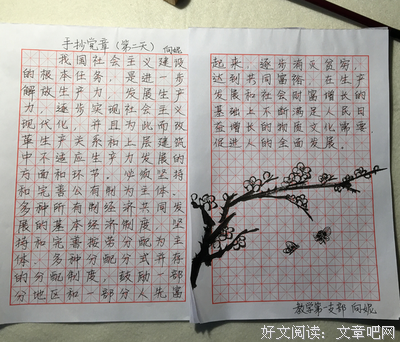 手抄党章（第二天）向妮
我国社会主义建设
的根本任务，是进一步
解放生产力，发展生产
力，逐步实现社会主义
现代化，并且为此而改
革生产关系和上层建筑
中不适应生产力发展的
方面和环节。必须坚持
和完善公有制为主体、
多种所有制经济共同发
展的基本经济制度，坚
持和完善按劳分配为主
体、多种分配方式并存
的分配制度，鼓励一部
分地区和一部分人先富
起来，逐步消灭贫穷，
达到共同富裕，在生产
发展和社会财富增长的
基础上不断满足人民日
益增长的物质文化需要，
促进人的全面发展。
教学第一支部 向妮
好文阅读：文章吧网